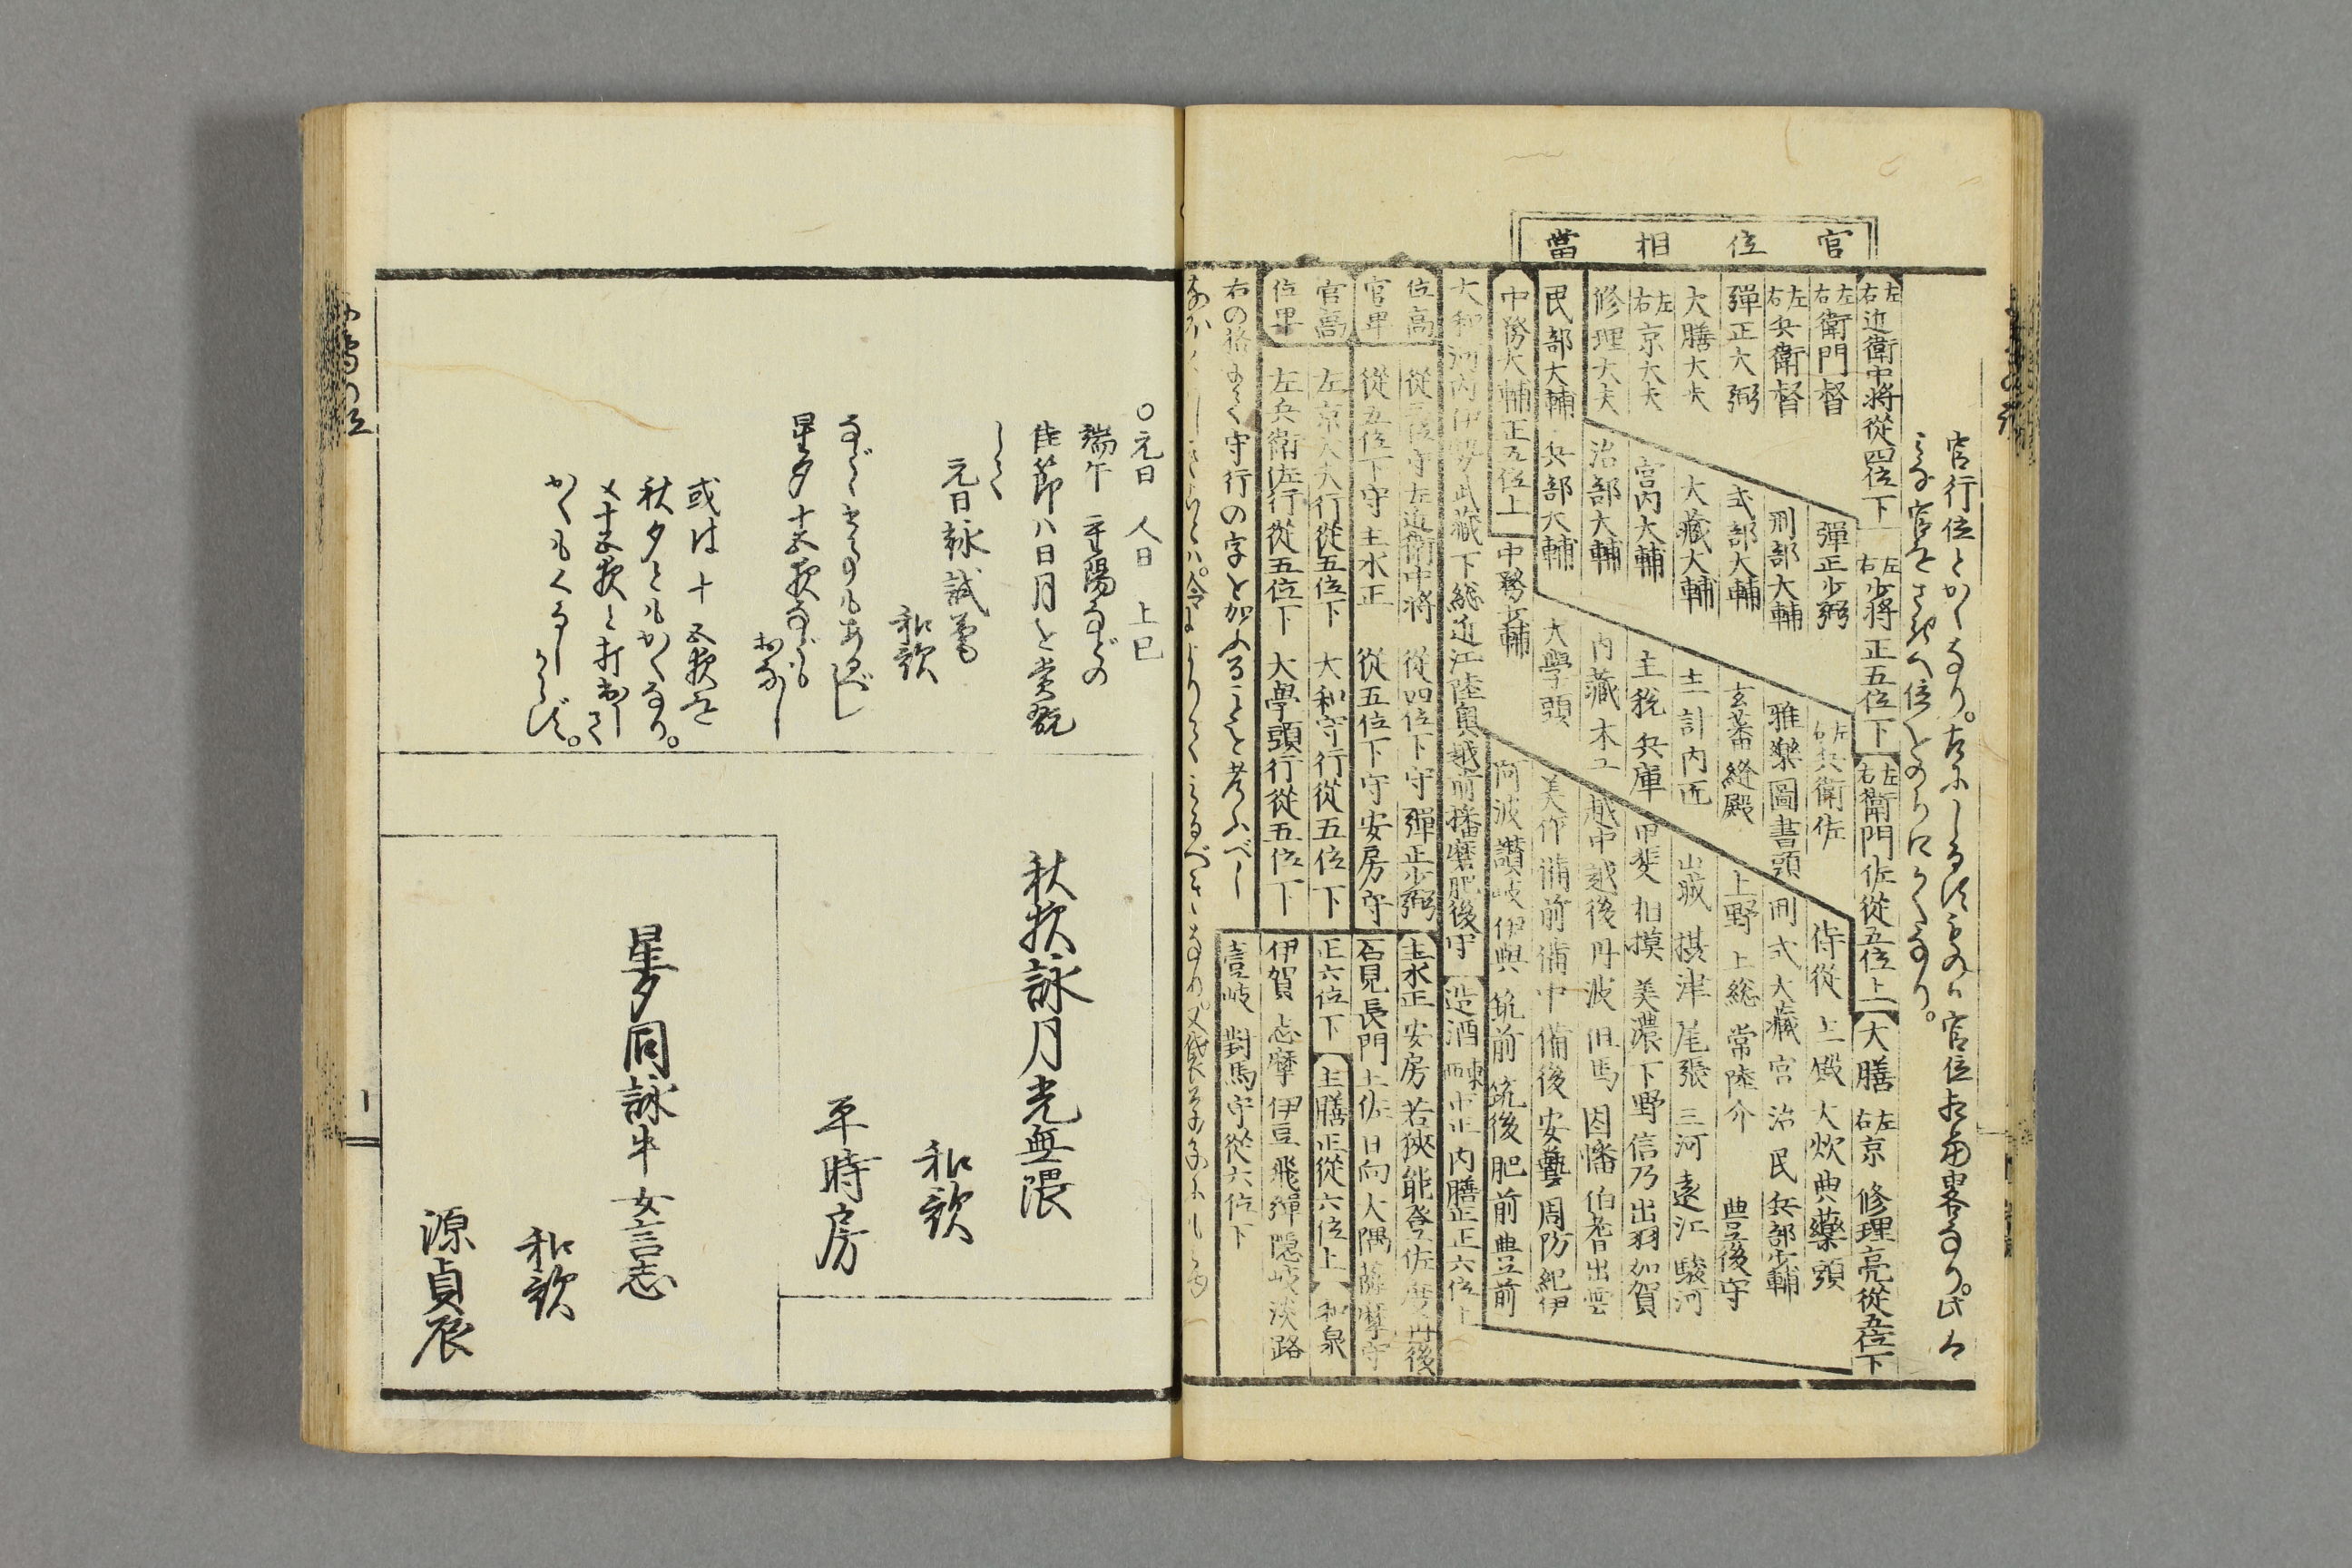 官位相當
左右近衛中將從四位下 左右少將正五位下 左右衛門佐從五位上 大膳 左右京 修理亮從五位下
左右衛門督 彈正少弼 左右兵衛佐 侍從 主殿 大炊 典藥頭
左右兵衛督 刑部大輔 雅樂 圖書頭 刑 式 大藏 宮 治 民 兵部少輔
彈正大弼 式部大輔 玄蕃 縫殿 上野 上総 常陸介 豊後守
大膳大夫 大藏大輔 主計 内匠 山城 摂津 尾張 三河 遠江 駿河
左右京大夫 宮内大輔 主税 兵庫 甲斐 相摸 美濃 下野 信乃 出羽 加賀
修理大夫 治部大輔 内藏 木工 越中 越後 丹波 但馬 因幡 伯耆 出雲
民部大輔 兵部大輔 大學頭 美作 備前 備中 備後 安藝 周防 紀伊
中務大輔正五位上 中務少輔 阿波 讃岐 伊與 筑前 筑後 肥前 豊前
大和 河内 伊勢 武藏 下総 近江 陸奥 越前 播磨 肥後守 造酒 東西市正 内膳正正六位上
位高 從三位守左近衛中將 從四位下守彈正少弼 主水正 安房 若狹 能登 佐度 丹後
官卑 從五位下守主水正 從五位下守安房守 石見 長門 土佐 日向 大隅 薩摩守
官高 左京大夫行從五位下 大和守行從五位下 正六位下 主膳正從六位上 和泉
位卑 左兵衛佐行從五位下 大學頭行從五位下 伊賀 志摩 伊豆 飛彈 隠岐 淡路
壹岐 對馬守從六位下
右の格にて守行の字を加ふることを考ふべし
○元日 人日 上巳
端午 重陽などの
佳節ハ日月を賞翫
して
元日詠試筆
和歌
などせるもあるべし
星夕 十五夜なども
おなし
或は十五夜を
秋夕ともかくなり。
かくもくるしからず。
秋夜詠月光無隈
和歌
平時房
星夕同詠牛女言志
和歌
源貞辰